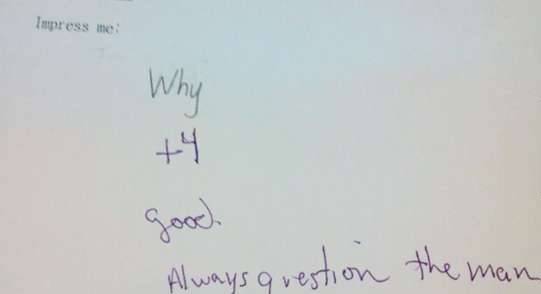 Impress me:
Why
+4
good.
Always question the man